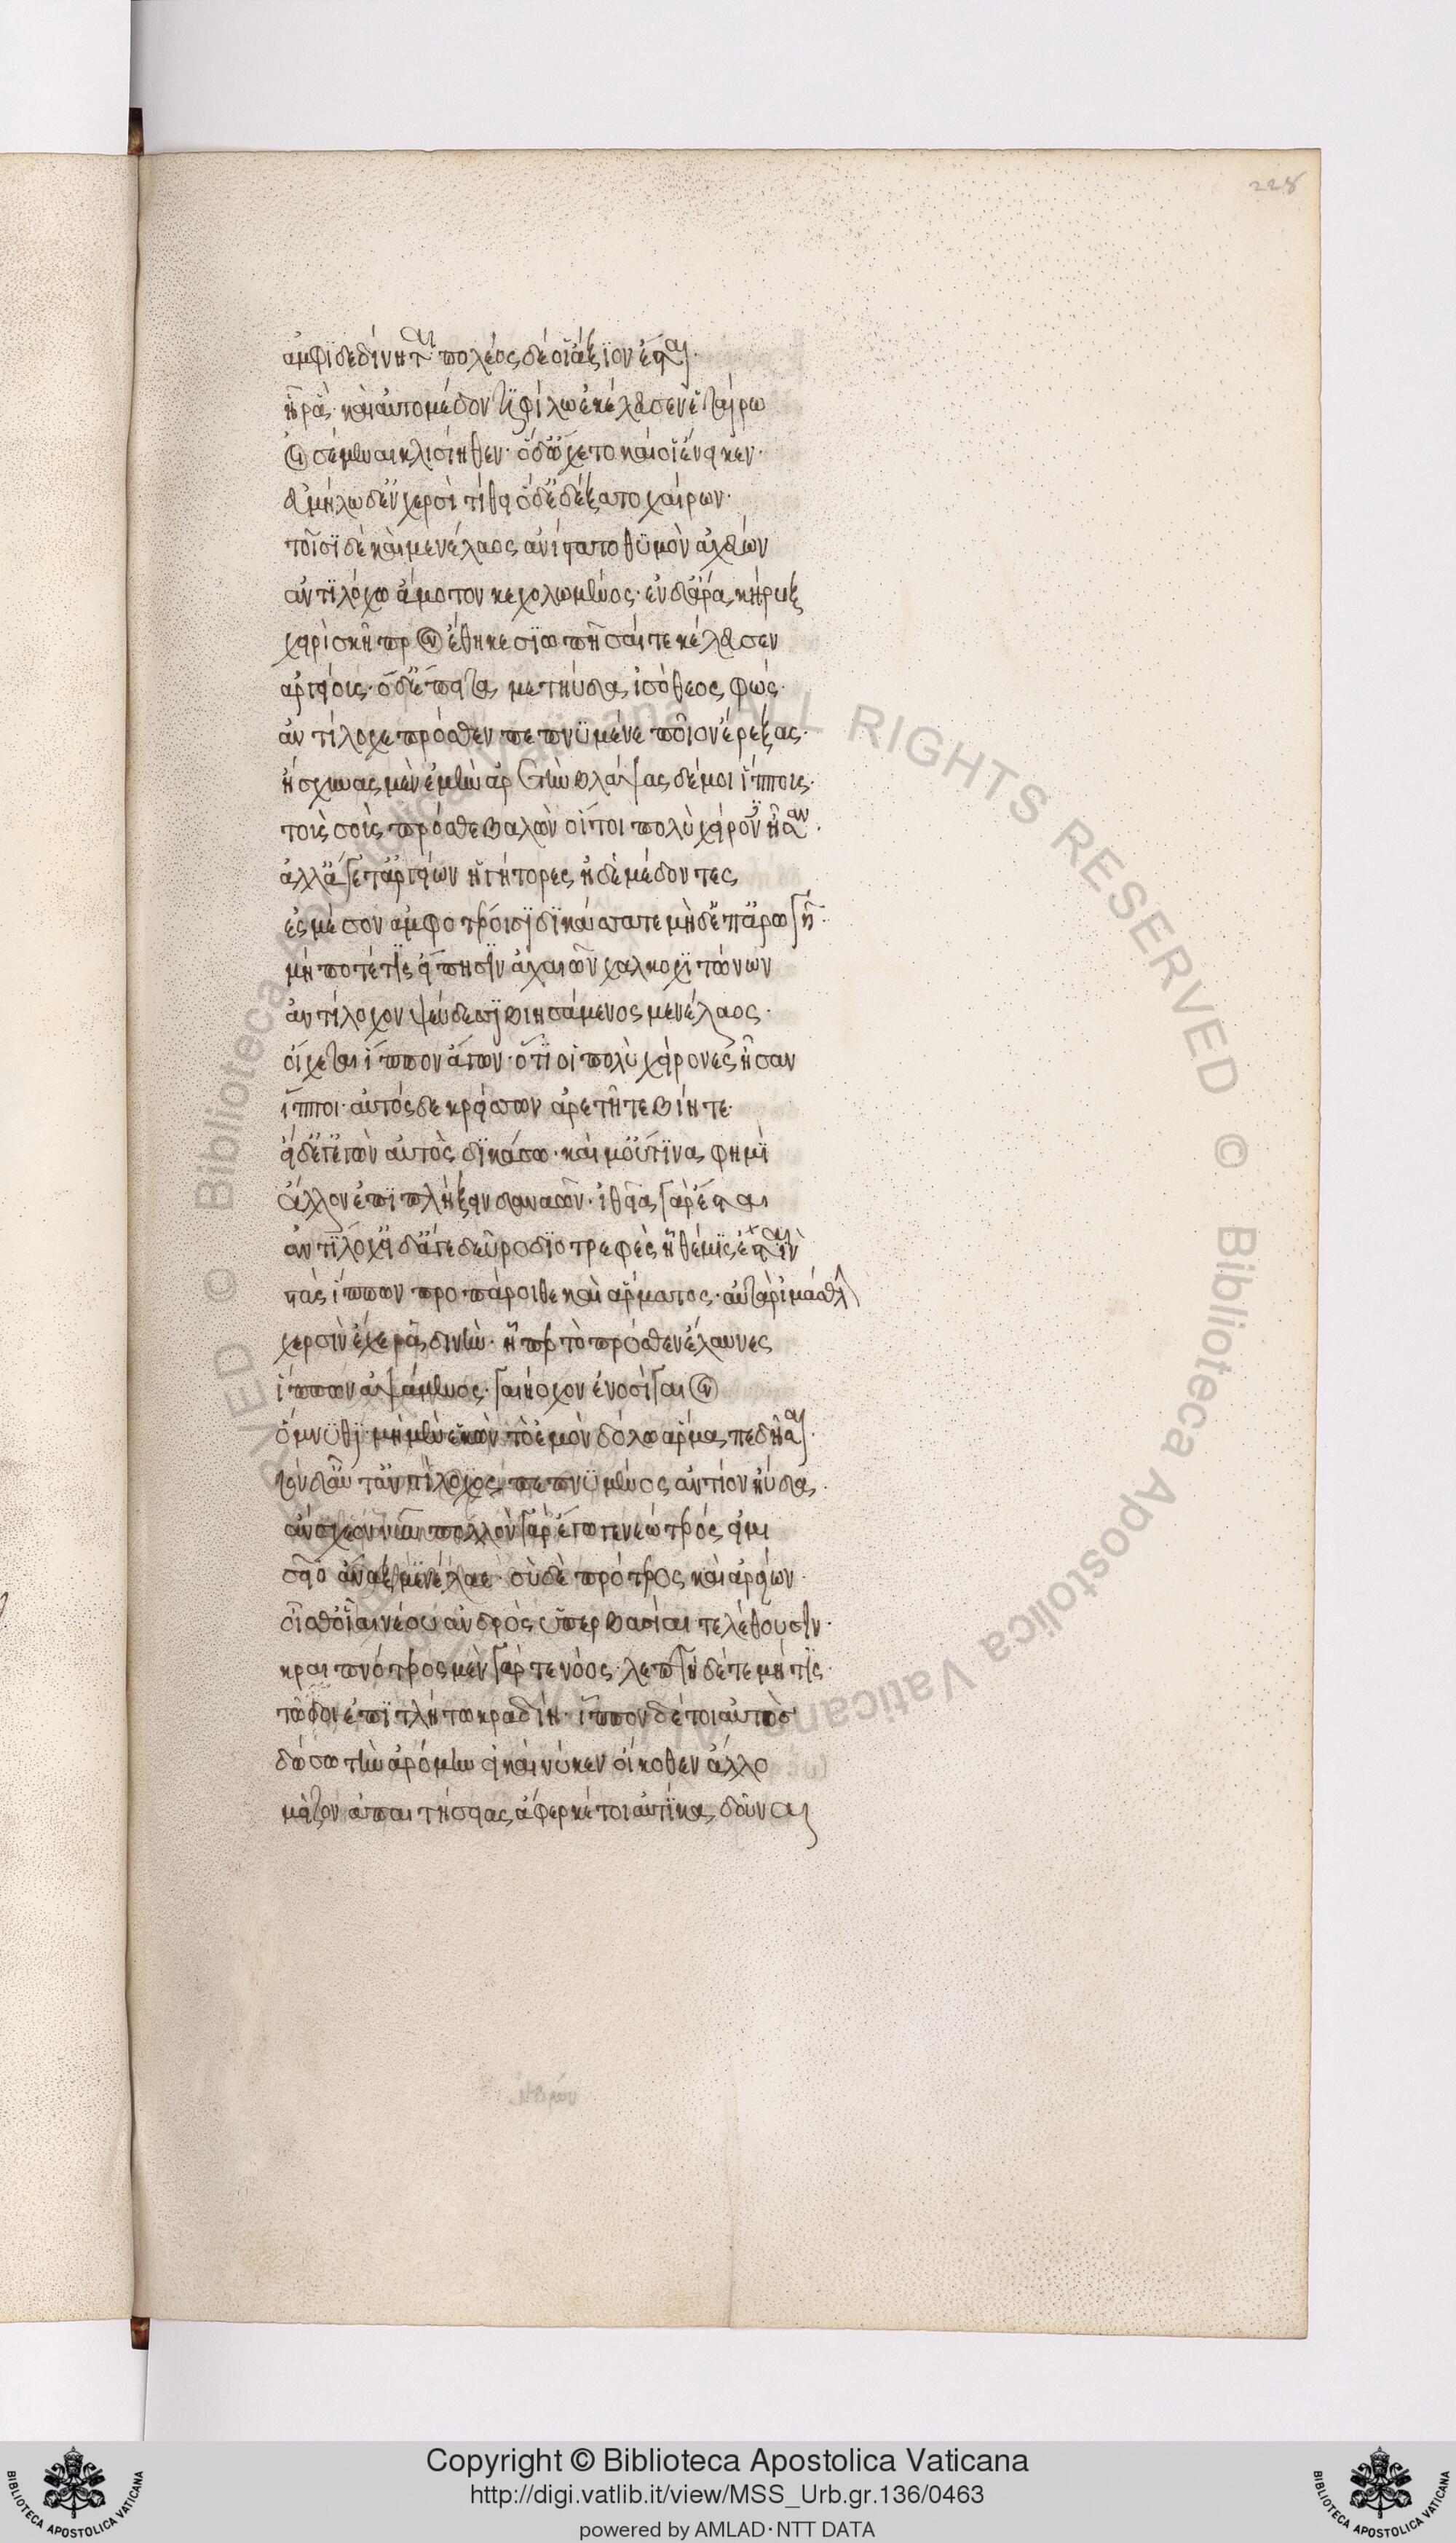 228
ἀμφιδεδίνηται· πολέος δέ οἱ ἄξιον ἔσται·
ἦ ῥα· καὶ αὐτομέδοντι φίλω ἐκέλευσεν ἑταίρω
οἰσέμεναι κλισίηθεν· ὁ δ' ὤχετο καί οἱ ἔνεικεν·
εὐμήλω δ' ἐν χερσὶ τίθει ὁ δὲ δέξατο χαίρων·
τοῖσι δὲ καὶ μενέλαος ἀνίστατο θυμὸν ἀχεύων
ἀντιλόχω ἄμοτον κεχολωμένος· ἐν δ' ἄρα κήρυξ
χειρὶ σκῆπτρον ἔθηκε σιωπῆσαί τε κέλευσεν
ἀργείοις· ὁ δ' ἔπειτα μετηύδα ἰσόθεος φώς·
ἀντίλοχε πρόσθεν πεπνυμένε ποῖον ἔρεξας·
ἤσχυνας μὲν ἐμὴν ἀρετὴν βλάψας δέ μοι ἵππους·
τοὺς σοὺς πρόσθε βαλὼν οἵ τοι πολὺ χείρονες ἦσαν·
ἀλλ' ἄγετ' ἀργείων ἡγήτορες ἠδὲ μέδοντες
ἐς μέσον ἀμφοτέροισι δικάσσατε μὴ δ' ἐπ' ἀρωγῆ·
μή ποτέ τις εἴπησιν ἀχαιῶν χαλκοχιτώνων
ἀντίλοχον ψεύδεσσι βιησάμενος μενέλαος·
οἴχεται ἵππον ἄγων· ὅτι οἱ πολὺ χείρονες ἦσαν
ἵπποι· αὐτὸς δὲ κρείσσων ἀρετῆ τε βίη τε·
εἰ δ' ἄγ' ἐγὼν αὐτὸς δικάσω· καί μ' οὔ τινα φημὶ
ἄλλον ἐπιπλήξειν δαναῶν· ἰθεῖα γὰρ ἔσται
ἀντίλοχ' εἰ δ' ἄγε δεῦρο διοτρεφὲς ἣ θέμις ἐστὶν
στὰς ἵππων προπάροιθε καὶ ἅρματος· αὐτὰρ ἱμάσθλην
χερσὶν ἔχε ῥαδινὴν· ᾗ περ τὸ πρόσθεν ἔλαυνες
ἵππων ἁψάμενος· γαιήοχον ἐνοσίγαιον
ὄμνυθι· μὴ μὲν ἑκὼν τὸ ἐμὸν δόλω ἅρμα πεδῆσαι·
τὸν δ' αὖτ' ἀντίλοχος πεπνυμένος ἀντίον ηὔδα·
ἄνσχεο νῦν· πολλὸν γὰρ ἔγωγε νεώτερός εἰμι
σεῖο ἄναξ μενέλαε· σὺ δὲ πρότερος καὶ ἀρείων·
οἶσθ' οἷαι νέου ἀνδρὸς ὑπερβασίαι τελέθουσιν·
κραιπνότερος μὲν γάρ τε νόος· λεπτὴ δέ τε μῆτις·
τῶ τοι ἐπιτλήτω κραδίη· ἵππον δέ τοι αὐτὸς
δώσω τὴν ἀρόμην εἰ καί νύ κεν οἴκοθεν ἄλλο
μεῖζον ἀπαιτήσειας ἄφαρ κέ τοι αὐτίκα δοῦναι
© Biblioteca Apostolica Vaticana ALL RIGHTS RESERVED © Biblioteca Apostolica Vaticana
Copyright © Biblioteca Apostolica Vaticana
http://digi.vatlib.it/view/MSS_Urb.gr.136/0463
powered by AMLAD·NTT DATA
BIBLIOTECA APOSTOLICA VATICANA
BIBLIOTECA APOSTOLICA VATICANA